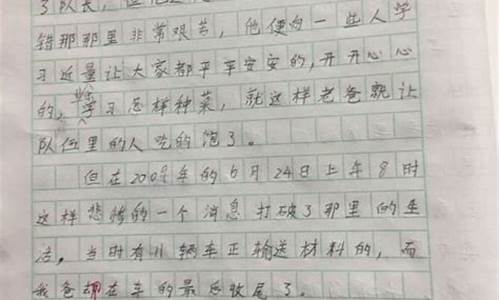 了队长，但他还
错那那里非常艰苦，他便向一些人学
习近量让大家都平平安安的，开开心心
的，学习怎样种菜，就这样老爸就让
队伍里的人吃的饱了。
但在2009年的6月24日上年8时
这样悲惨的一个消息打破了那里的生
活。当时有11辆车正输送材料的，而
我爸却在车的最后收尾了。